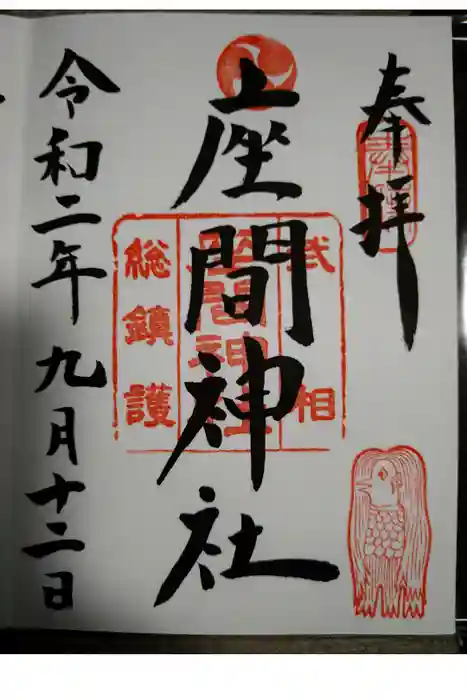 奉拝
座間神社
武相
座間神社
総鎮護
令和二年九月十二日